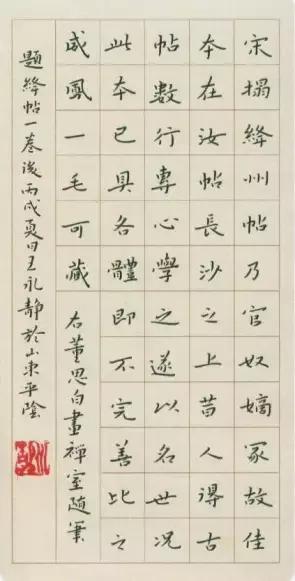 宋搨絳州帖乃官奴嫡冢故佳
本在汝帖長沙之上昔人得古
帖數行專心學之遂以名世況
此本已具各體即不完善比之
威鳳一毛可藏 右董思白畫禪室隨筆
題絳帖一卷後丙戌夏日王永靜於山東平陰